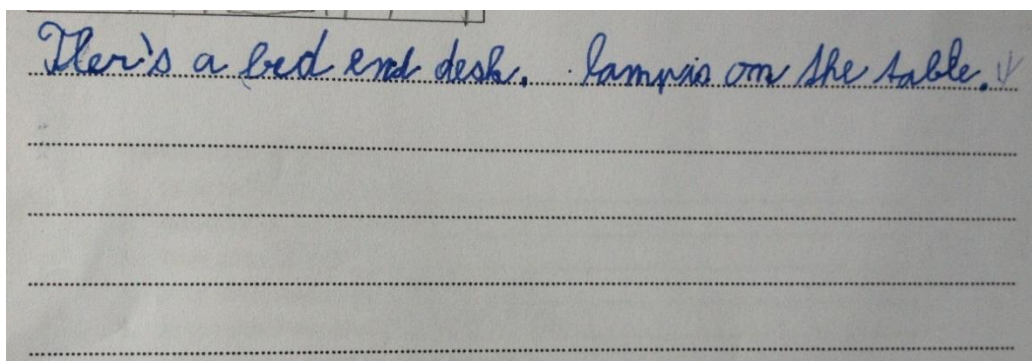 Ther's a bed end desk. lamp is on the table.